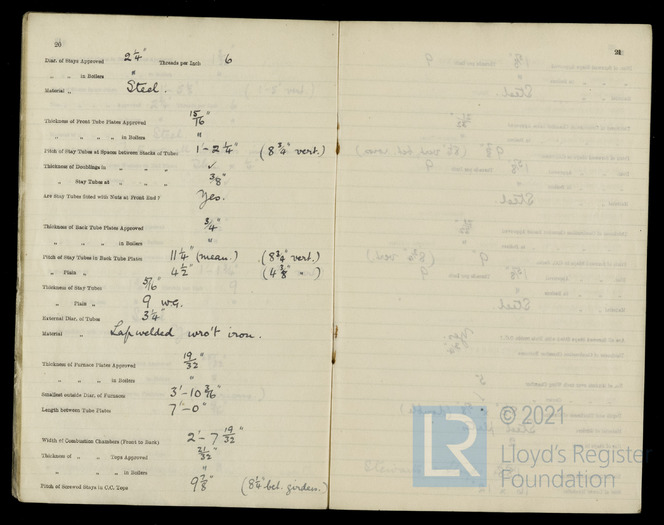 20
Diar. of Stays Approved 2¼" Threads per Inch 6
„ „ in Boilers "
Material „ Steel.
Thickness of Front Tube Plates Approved 15/16"
„ „ „ „ in Boilers "
Pitch of Stay Tubes at Spaces between Stacks of Tubes 1'-2¼" (8¾" vert.)
Thickness of Doublings in „ „ „ „ ✓
„ Stay Tubes at „ „ „ 3/8"
Are Stay Tubes fitted with Nuts at Front End? Yes.
Thickness of Back Tube Plates Approved ¾"
„ „ „ „ in Boilers "
Pitch of Stay Tubes in Back Tube Plates 11¼" (mean.) (8¾" vert.)
„ Plain „ 4½" (4⅜" „ )
Thickness of Stay Tubes 5/16"
„ Plain „ 9 W.G.
External Diar. of Tubes 3¼"
Material „ Lapwelded wro't iron.
Thickness of Furnace Plates Approved 19/32"
„ „ „ „ in Boilers "
Smallest outside Diar. of Furnaces 3'-10 3/16"
Length between Tube Plates 7'-0"
Width of Combustion Chambers (Front to Back) 2'-7 19/32"
Thickness of „ „ Tops Approved 21/32"
„ „ „ „ in Boilers "
Pitch of Screwed Stays in C.C. Tops 9⅞" (8¼" bet. girders.)
21
© 2021
LR
Lloyd's Register
Foundation